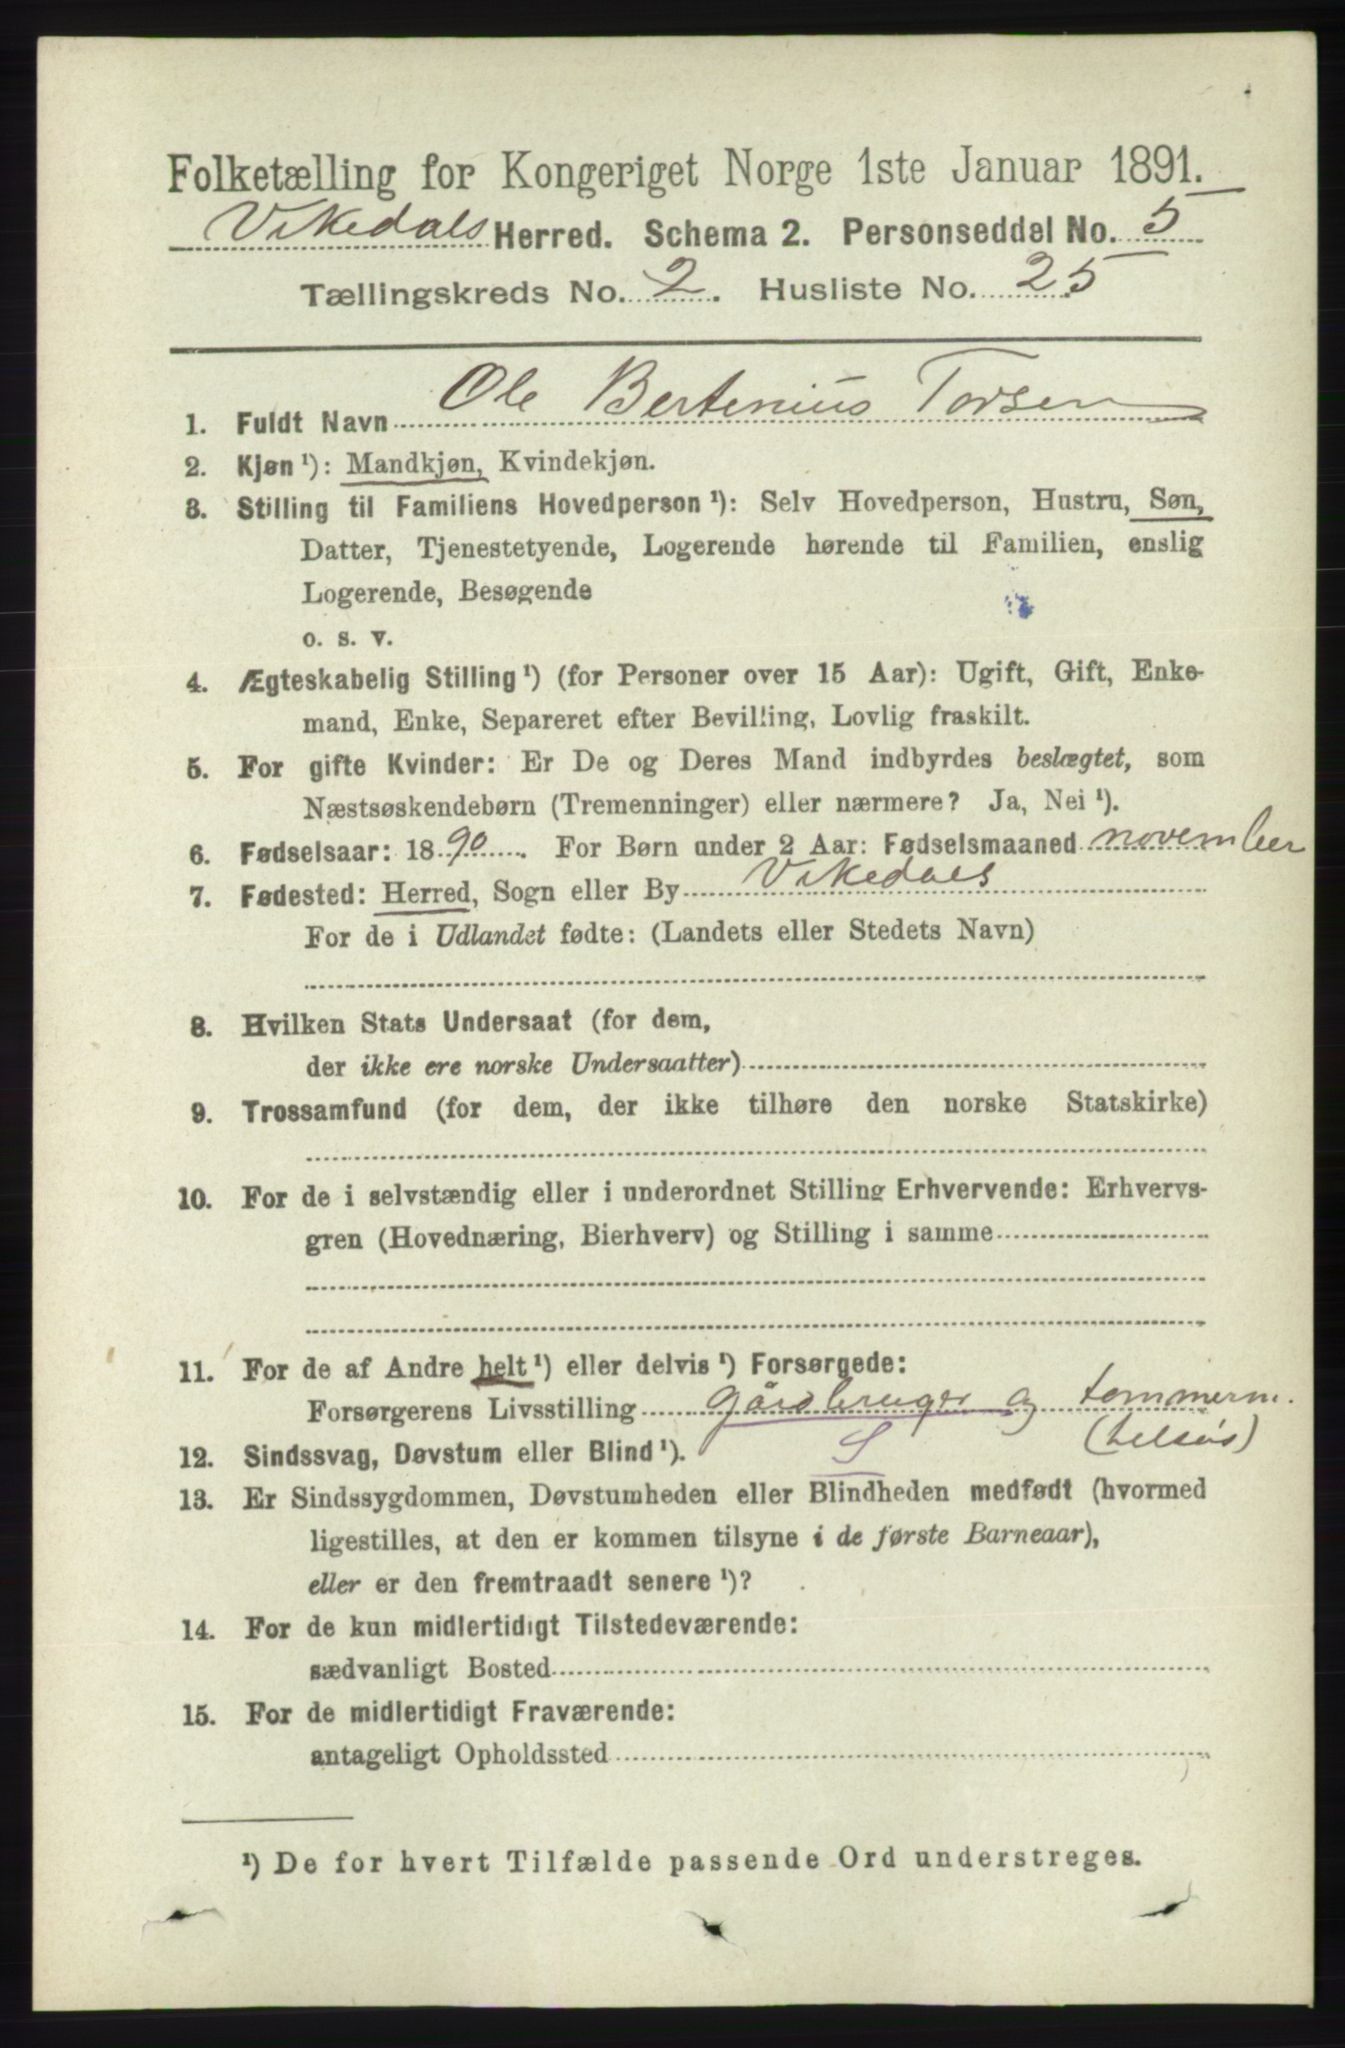 Folketælling for Kongeriget Norge 1ste Januar 1891.
Vikedals Herred. Schema 2. Personseddel No. 5
Tællingskreds No. 2. Husliste No. 25
1. Fuldt Navn Ole Bertenius Torsen
2. Kjøn ¹): Mandkjøn, Kvindekjøn.
3. Stilling til Familiens Hovedperson ¹): Selv Hovedperson, Hustru, Søn,
Datter, Tjenestetyende, Logerende hørende til Familien, enslig
Logerende, Besøgende
o. s. v.
4. Ægteskabelig Stilling ¹) (for Personer over 15 Aar): Ugift, Gift, Enke-
mand, Enke, Separeret efter Bevilling, Lovlig fraskilt.
5. For gifte Kvinder: Er De og Deres Mand indbyrdes beslægtet, som
Næstsøskendebørn (Tremenninger) eller nærmere? Ja, Nei ¹).
6. Fødselsaar: 1890. For Børn under 2 Aar: Fødselsmaaned november
7. Fødested: Herred, Sogn eller By Vikedals
For de i Udlandet fødte: (Landets eller Stedets Navn)
8. Hvilken Stats Undersaat (for dem,
der ikke ere norske Undersaatter)
9. Trossamfund (for dem, der ikke tilhøre den norske Statskirke)
10. For de i selvstændig eller i underordnet Stilling Erhvervende: Erhvervs-
gren (Hovednæring, Bierhverv) og Stilling i samme
11. For de af Andre helt ¹) eller delvis ¹) Forsørgede:
Forsørgerens Livsstilling gårdbruger og tømmerm.
12. Sindssvag, Døvstum eller Blind ¹). S
13. Er Sindssygdommen, Døvstumheden eller Blindheden medfødt (hvormed
ligestilles, at den er kommen tilsyne i de første Barneaar),
eller er den fremtraadt senere ¹)?
14. For de kun midlertidigt Tilstedeværende:
sædvanligt Bosted
15. For de midlertidigt Fraværende:
antageligt Opholdssted
¹) De for hvert Tilfælde passende Ord understreges.